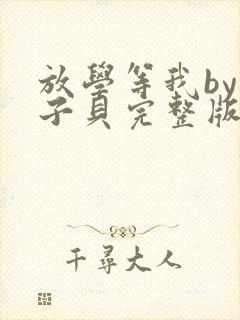 放學等我by
子貝完整版
千尋大人